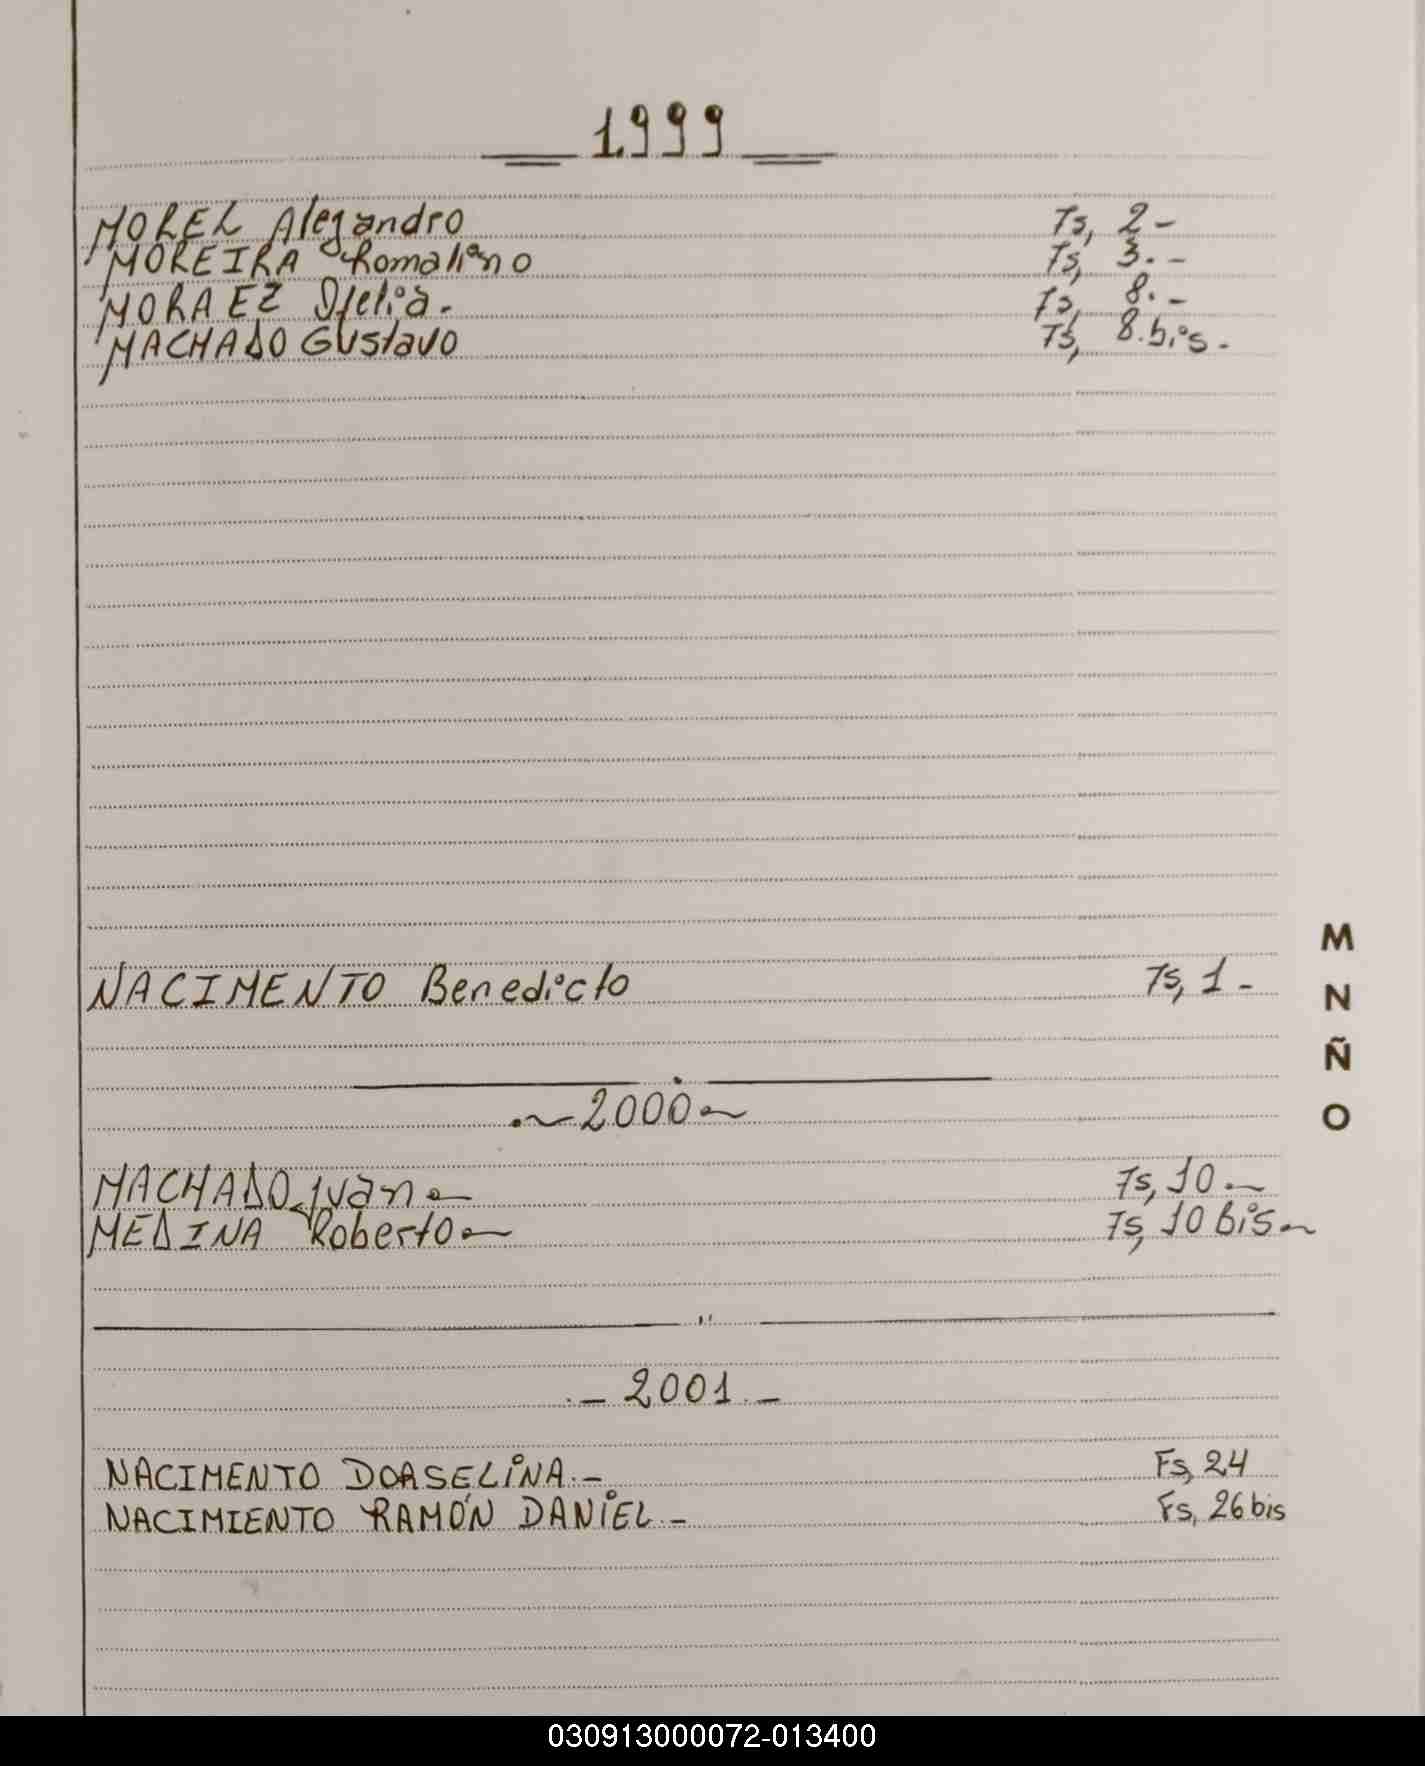 1999
MOREL Alejandro Fs, 2-
MOREIRA Romaliano Fs, 3.-
MORAEZ Ofelia.- Fs, 8.-
MACHADO Gustavo Fs, 8.bis.-
NACIMENTO Benedicto Fs, 1-
M
N
Ñ
O
2000
MACHADO Juan Fs, 10.-
MEDINA Roberto Fs, 10 bis
.- 2001.-
NACIMENTO DORSELINA.- Fs, 24
NACIMIENTO RAMÓN DANIEL.- Fs, 26 bis
030913000072-013400